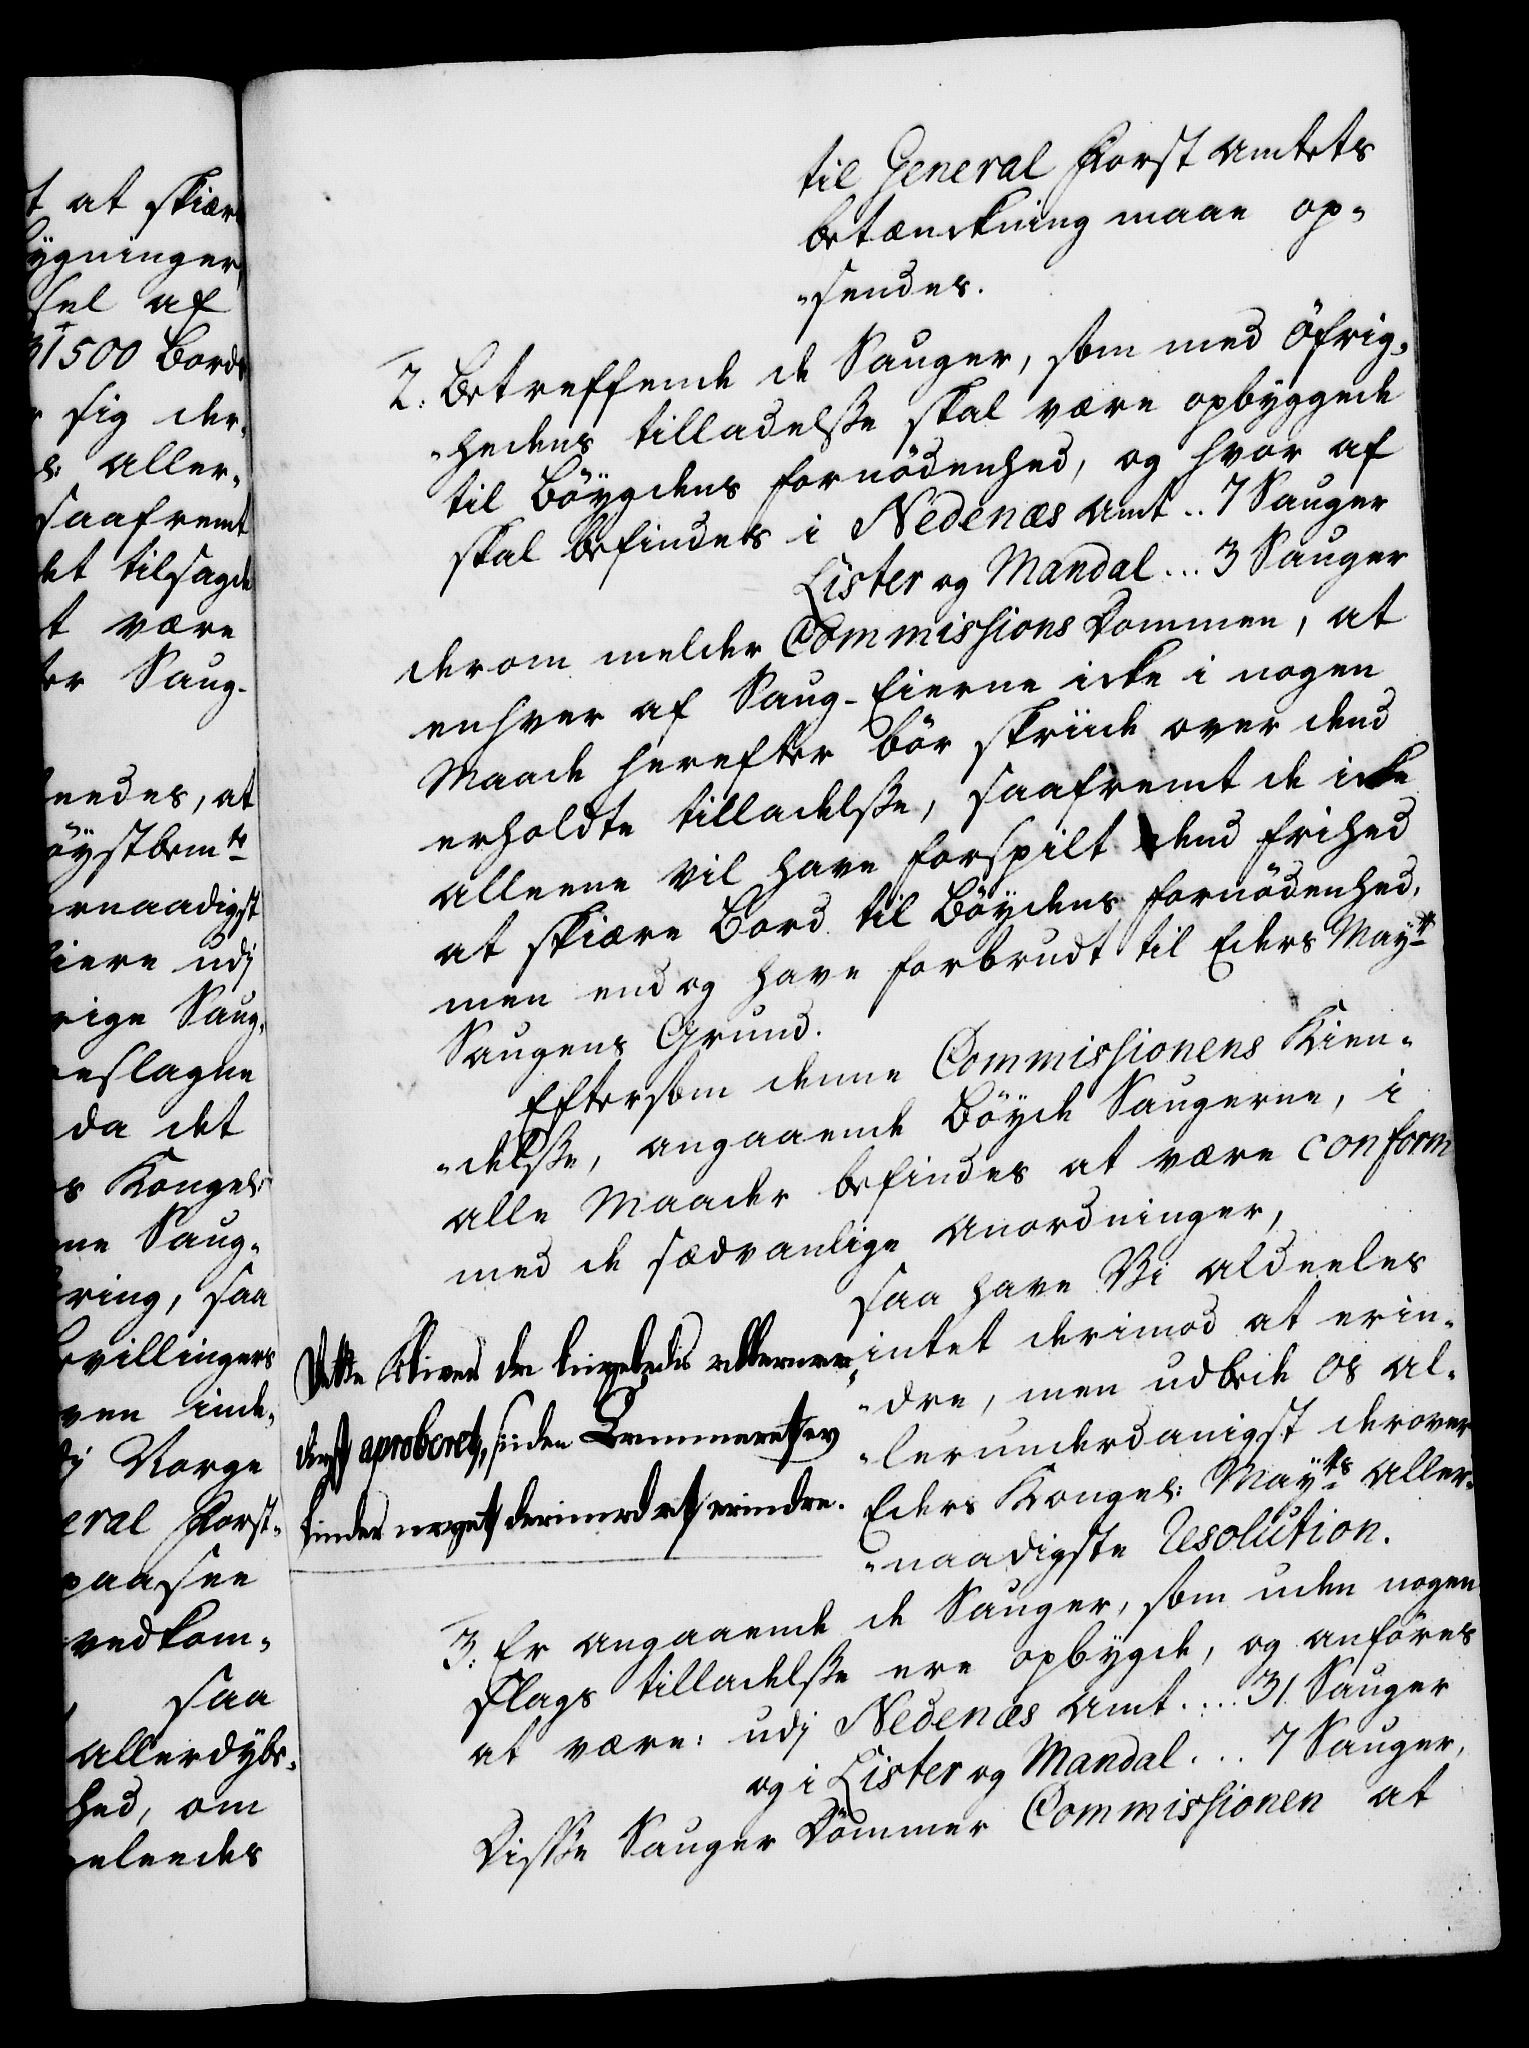 t at skiære
ygninger,
sel af
31500 Bord
sig der„
s: aller„
saafremt
et tilsagde
t være
er Saug-
eedes, at
öystbemte
ernaadigst
iere udj
rige Saug„
eslagne
da det
s Kongel:
ne Saug„
ring, saa
villingers
ven inde„
dj Norge
eral Forst„
paasee
vedkom„
saa
allerdybs„
hed, om
eleedes
til General Forst Amtets
betænckning maae op„
„sendes.
2: Betreffende de Sauger, som med Öfrig„
„hedens tilladelsse skal være opbyggede
til Böygdens fornödenhed, og hvor af
skal befindes i Nedenæs Amt .. 7 Sauger
Lister og Mandal ... 3 Sauger
derom melder Commissions Dommen, at
enhver af Saug-Eierne icke i nogen
Maade herefter bör skriide over dend
erholdte tilladelsse, saafremt de icke
alleene vil have forspilt dend frihed
at skiære Bord til Böydens fornödenhed,
men end og have forbrudt til Eders Maytt
Saugens Grund.
Eftersom denne Commissionens Kien„
„delsse, angaaende Böyde Saugerne, i
alle Maader befindes at være conform
med de sædvanlige Anordninger,
saa have Vi aldeeles
intet derimod at erin„
„dre, men udbede os al„
„lerunderdanigst derover
Eders Kongel: Maytts aller„
„naadigste Resolution.
Dette bliver da ligeledis allernaa„
digst aproberet, siiden Cammeret ey
finder noget derimod at erindre.
3: Er angaaende de Sauger, som uden nogen
slags tilladelsse ere opbygde, og anföres
at være: udj Nedenæs Amt .... 31 Sauger
og i Lister og Mandal ... 7 Sauger,
Disse Sauger Dömmer Commissionen at